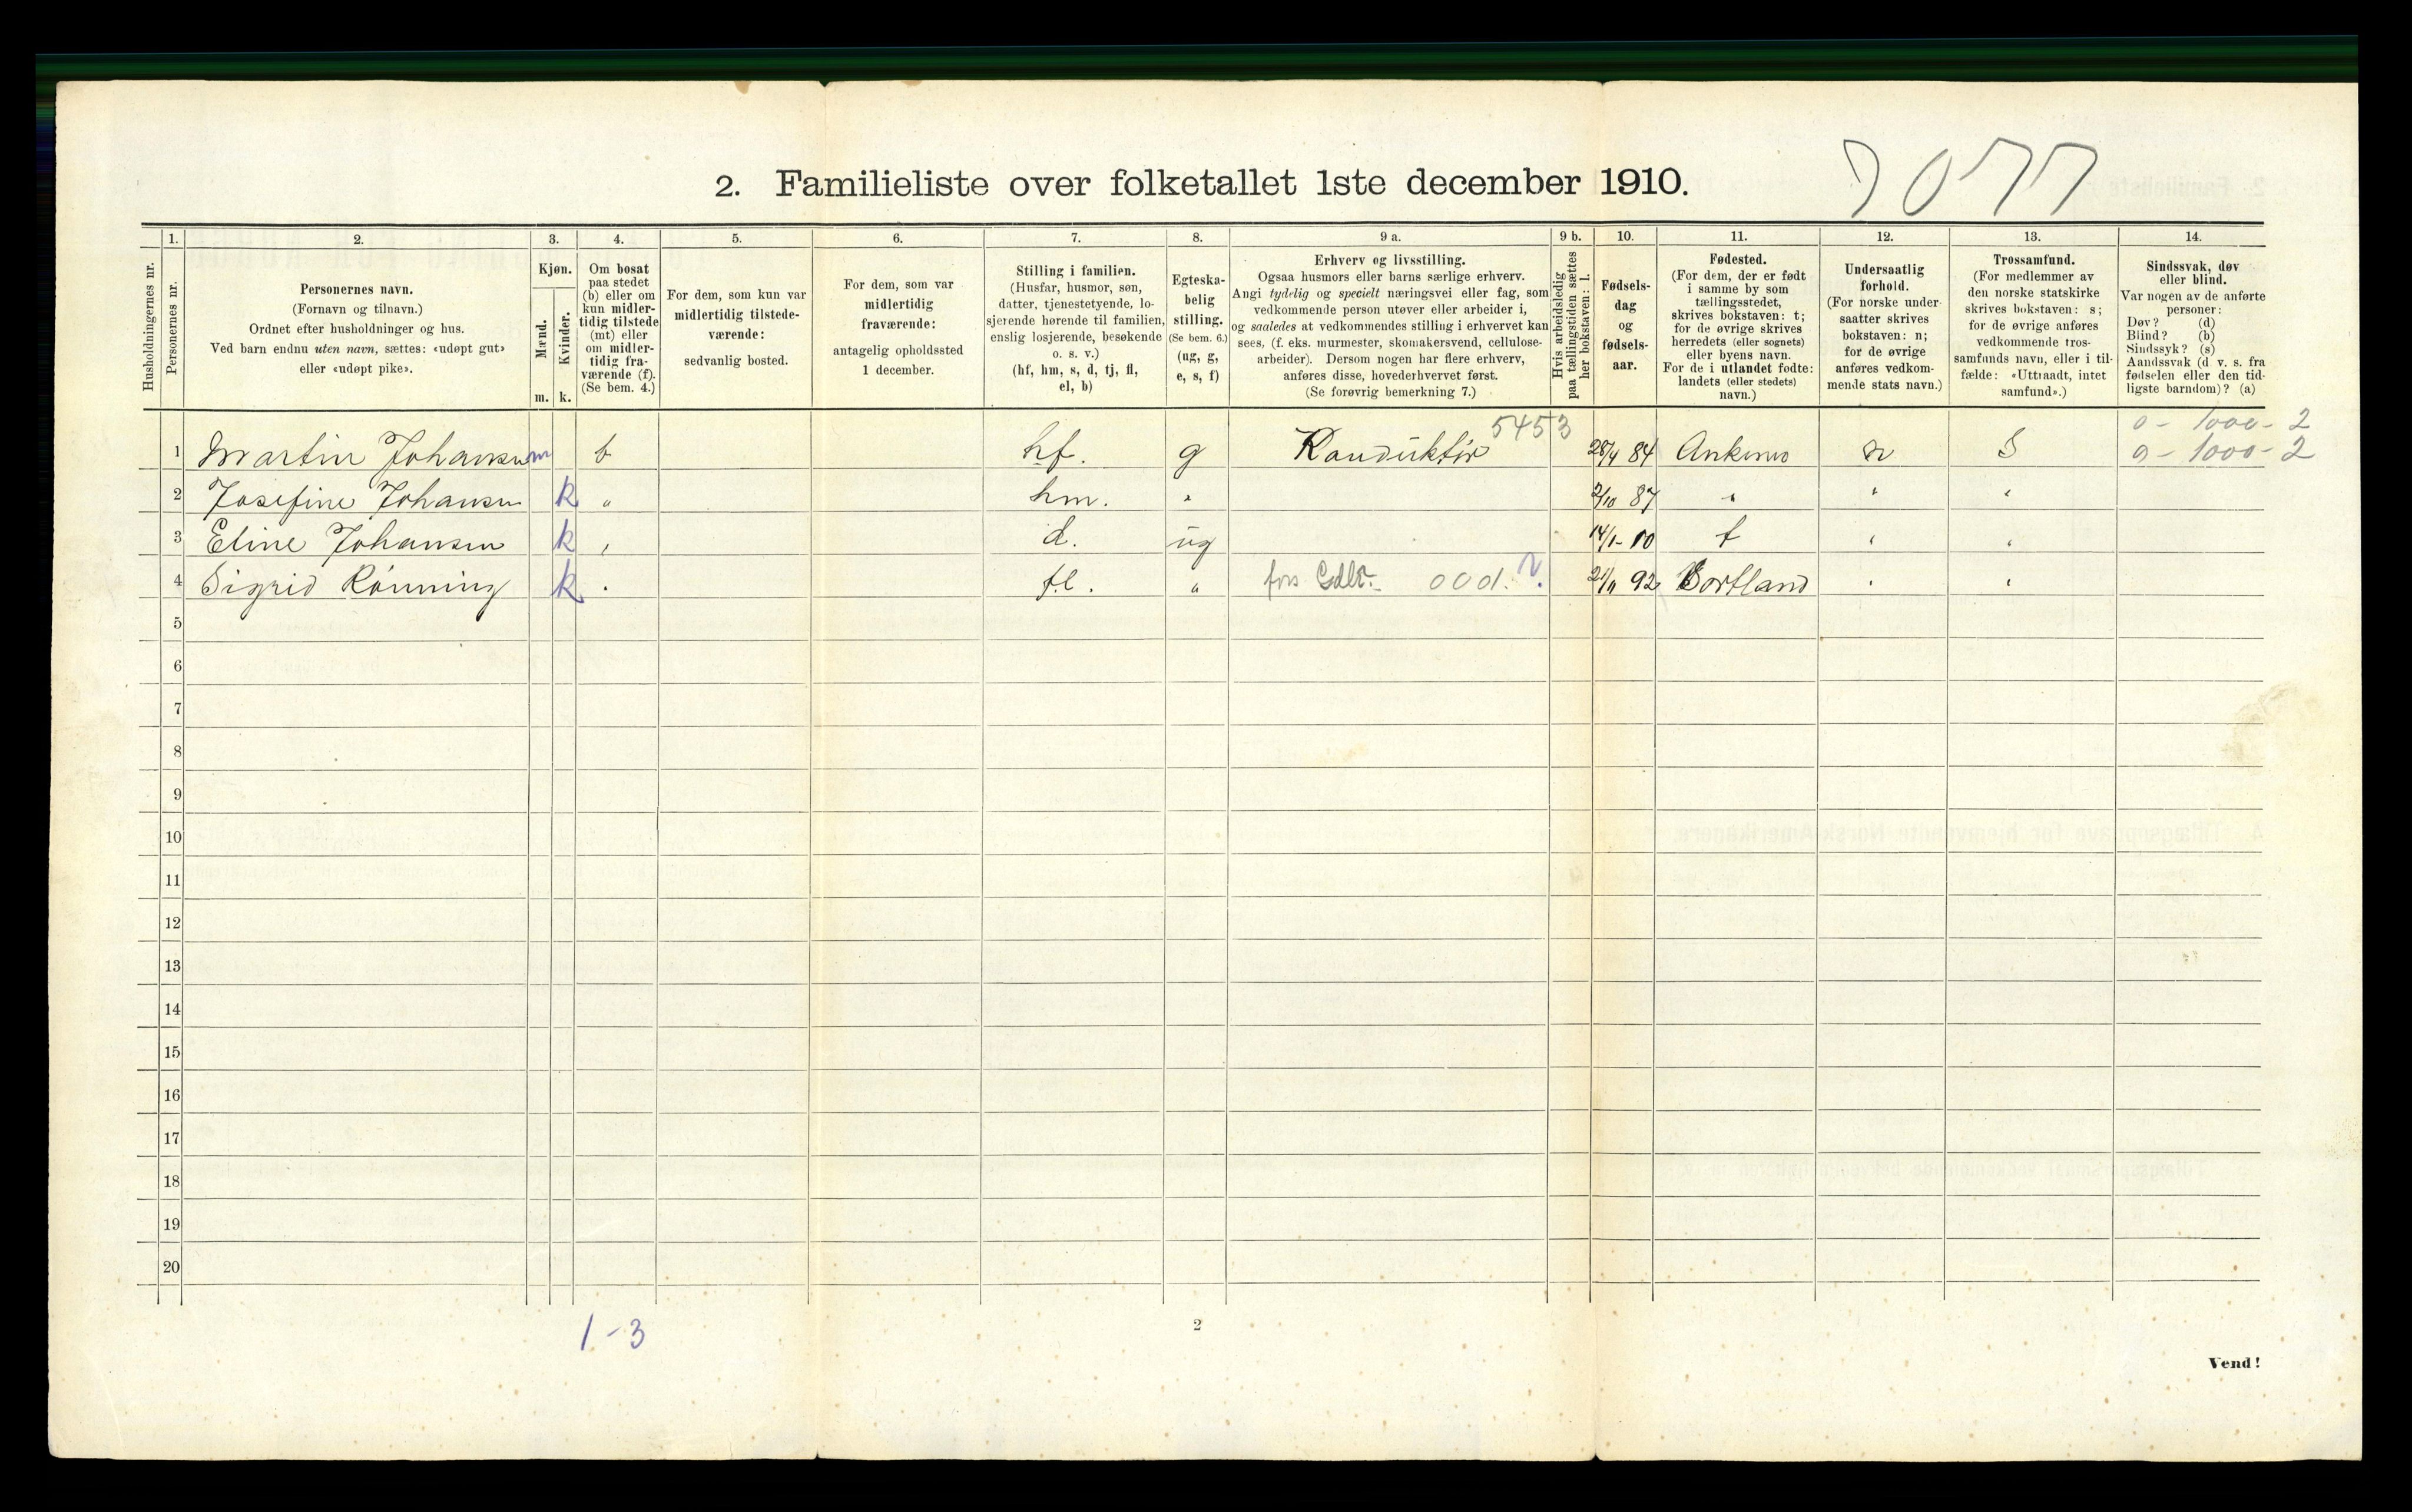 7077
2. Familieliste over folketallet 1ste december 1910.
1. 2. 3. 4. 5. 6. 7. 8. 9 a. 9 b. 10. 11. 12. 13. 14.
Husholdningernes nr.
Personernes nr.
Personernes navn.
(Fornavn og tilnavn.)
Ordnet efter husholdninger og hus.
Ved barn endnu uten navn, sættes: «udøpt gut»
eller «udøpt pike».
Kjøn.
Mænd.
m.
Kvinder.
k.
Om bosat
paa stedet
(b) eller om
kun midler-
tidig tilstede
(mt) eller
om midler-
tidig fra-
værende (f).
(Se bem. 4.)
For dem, som kun var
midlertidig tilstede-
værende:
sedvanlig bosted.
For dem, som var
midlertidig
fraværende:
antagelig opholdssted
1 december.
Stilling i familien.
(Husfar, husmor, søn,
datter, tjenestetyende, lo-
sjerende hørende til familien,
enslig losjerende, besøkende
o. s. v.)
(hf, hm, s, d, tj, fl,
el, b)
Egteska-
belig
stilling.
(Se bem. 6.)
(ug, g,
e, s, f)
Erhverv og livsstilling.
Ogsaa husmors eller barns særlige erhverv.
Angi tydelig og specielt næringsvei eller fag, som
vedkommende person utøver eller arbeider i,
og saaledes at vedkommendes stilling i erhvervet kan
sees, (f. eks. murmester, skomakersvend, cellulose-
arbeider). Dersom nogen har flere erhverv,
anføres disse, hovederhvervet først.
(Se forøvrig bemerkning 7.)
Hvis arbeidsledig
paa tællingstiden sættes
her bokstaven: l.
Fødsels-
dag
og
fødsels-
aar.
Fødested.
(For dem, der er født
i samme by som
tællingsstedet,
skrives bokstaven: t;
for de øvrige skrives
herredets (eller sognets)
eller byens navn.
For de i utlandet fødte:
landets (eller stedets)
navn.)
Undersaatlig
forhold.
(For norske under-
saatter skrives
bokstaven: n;
for de øvrige
anføres vedkom-
mende stats navn.)
Trossamfund.
(For medlemmer av
den norske statskirke
skrives bokstaven: s;
for de øvrige anføres
vedkommende tros-
samfunds navn, eller i til-
fælde: «Uttraadt, intet
samfund».)
Sindssvak, døv
eller blind.
Var nogen av de anførte
personer:
Døv? (d)
Blind? (b)
Sindssyk? (s)
Aandssvak (d v. s. fra
fødselen eller den tid-
ligste barndom)? (a)
5453 0 - 1000 - 2
1 Martin Johansen m b hf. g Konduktør 28/4 84 Ankenes n S 0 - 1000 - 2
2 Josefine Johansen k " hm. " 2/10 87 " " "
3 Eline Johansen k " d. ug 14/1 - 10 t " "
4 Sigrid Rönning k " fl. " fors 000. ? 21/11 92 Bortland " "
5
6
7
8
9
10
11
12
13
14
15
16
17
18
19
20
1 - 3
2
Vend!